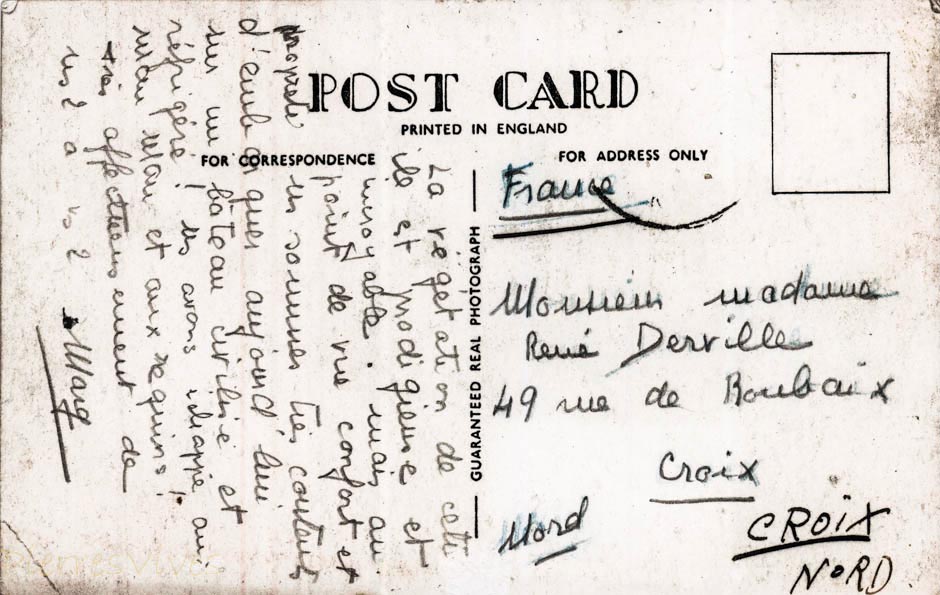 POST CARD
PRINTED IN ENGLAND
FOR CORRESPONDENCE
FOR ADDRESS ONLY
La végétation de cette
île et prodigieuse et
incroyable. mais au
point de vue confort et
propreté ns sommes très contents
d'embarquer aujourd'hui
sur un bateau civilisé et
réfrigéré! ns avons échappé aux
mau mau et aux requins!
très affectueusement de
ns 2 à vs 2
Marg
GUARANTEED REAL PHOTOGRAPH
France
Monsieur madame
René Derville
49 rue de Roubaix
Croix
Nord
CROIX
NORD